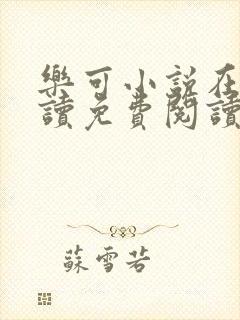 樂可小說在
讀免費閱讀
蘇雪若